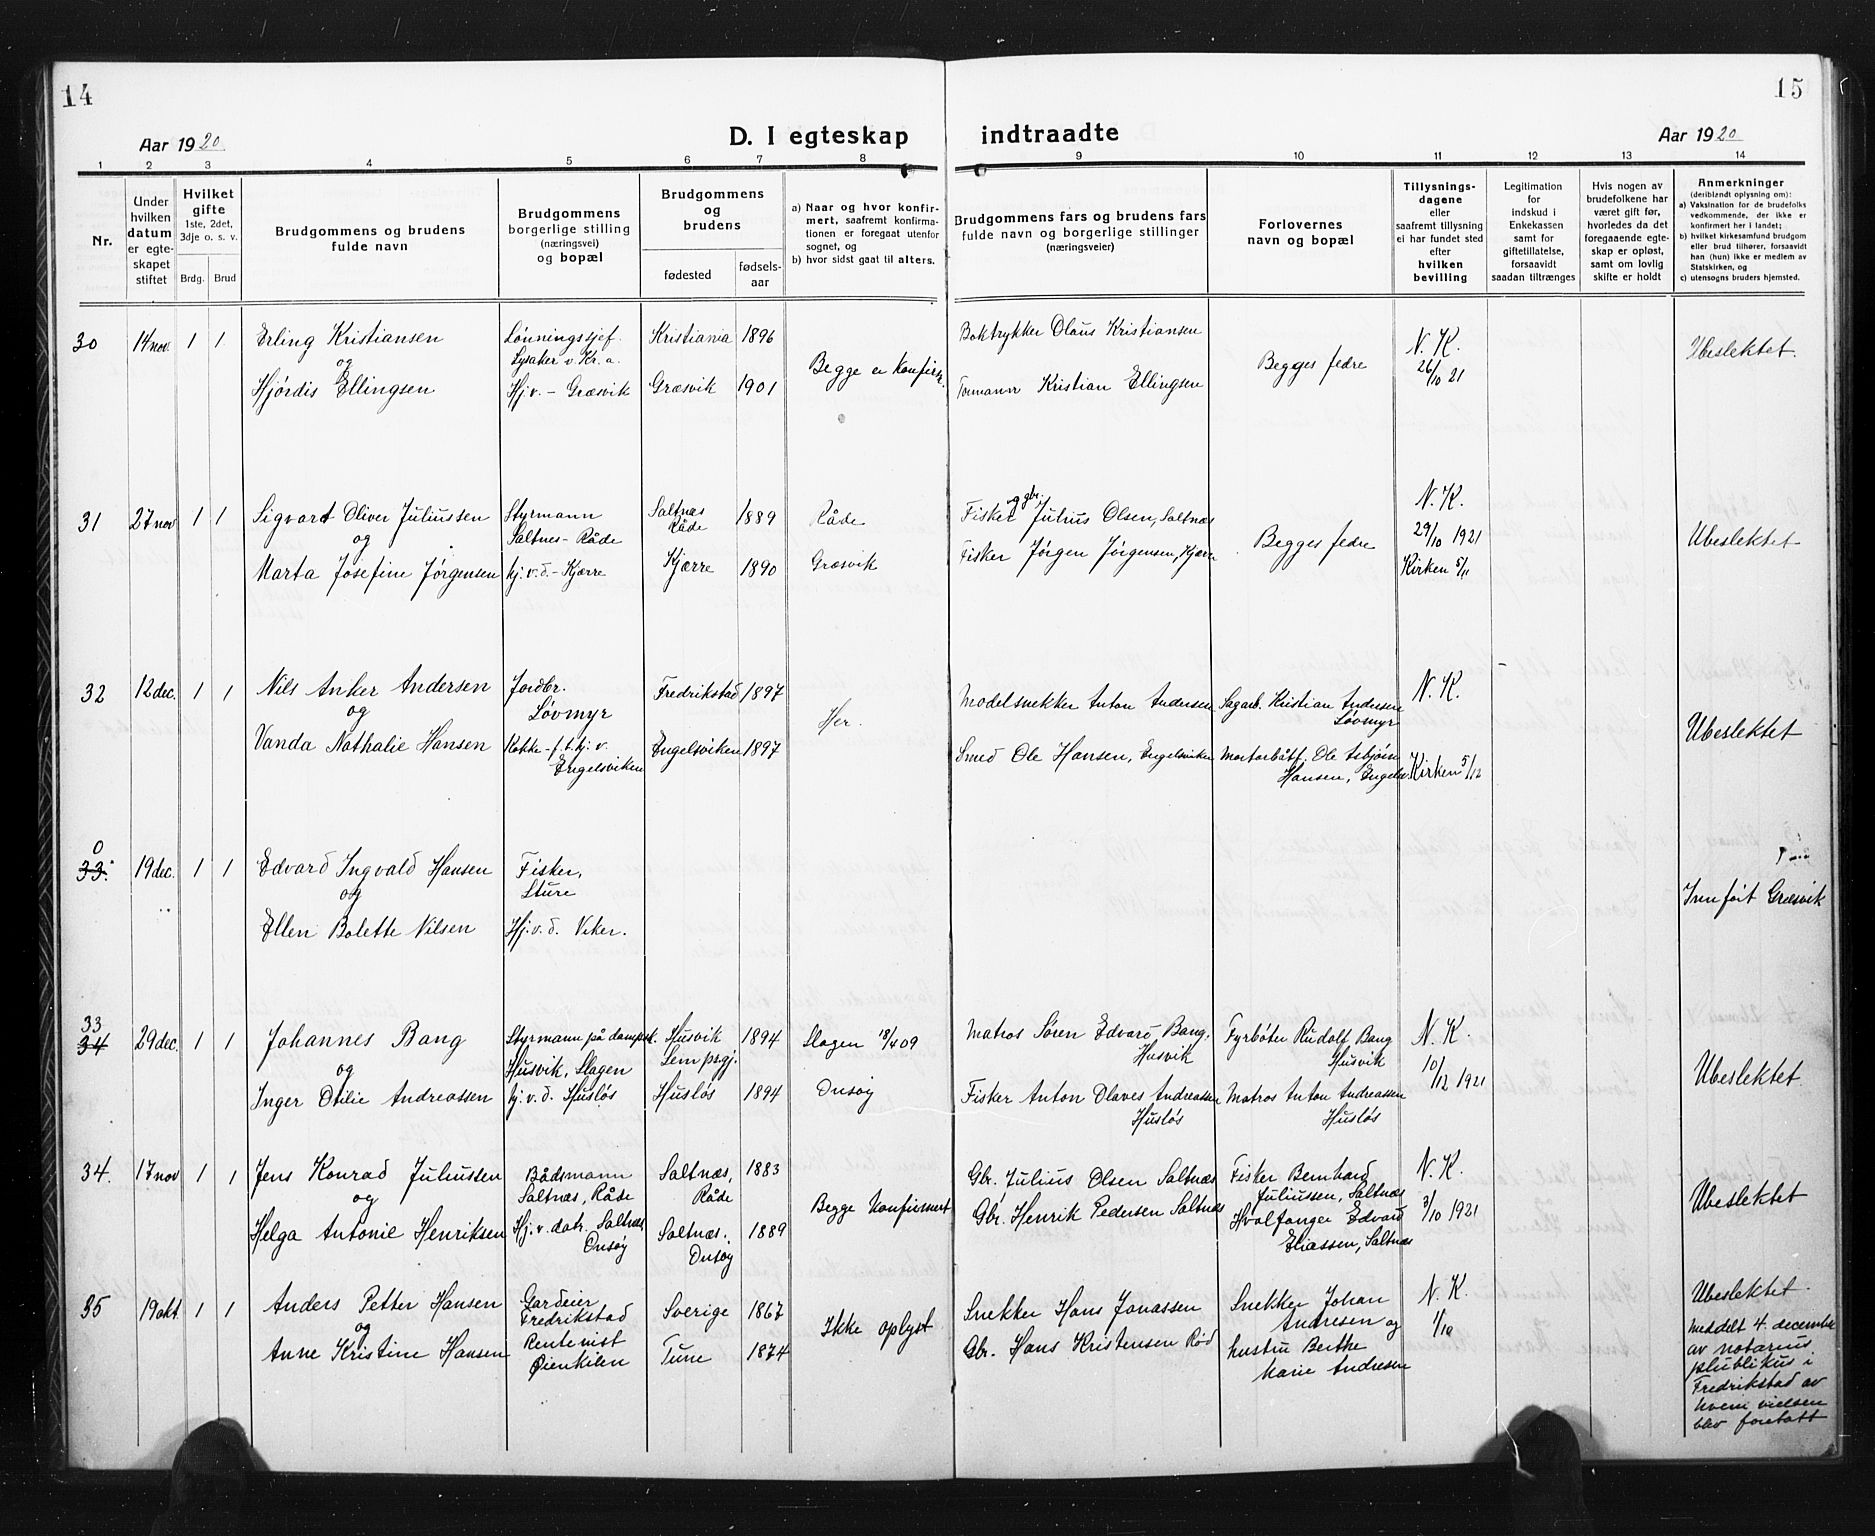 14
15
Aar 1920
D. I egteskap
indtraadte
Aar 1920
1 2 3 4 5 6 7 8 9 10 11 12 13 14
Nr.
Under hvilken datum er egteskapet stiftet
Hvilket gifte 1ste, 2det, 3dje o. s. v.
Brdg. Brud
Brudgommens og brudens fulde navn
Brudgommens borgerlige stilling (næringsvei) og bopæl
Brudgommens og brudens
fødested
fødsels-aar
a) Naar og hvor konfirmert, saafremt konfirmationen er foregaat utenfor sognet, og
b) hvor sidst gaat til alters.
Brudgommens fars og brudens fars fulde navn og borgerlige stillinger (næringsveier)
Forlovernes navn og bopæl
Tillysnings-dagene eller saafremt tillysning ei har fundet sted efter hvilken bevilling
Legitimation for indskud i Enkekassen samt for giftetillatelse, forsaavidt saadan tiltrænges
Hvis nogen av brudefolkene har været gift før, hvorledes da det foregaaende egteskap er opløst, samt om lovlig skifte er holdt
Anmerkninger
(deriblandt oplysning om):
a) Vaksination for de brudefolks vedkommende, der ikke er konfirmert her i landet;
b) hvilket kirkesamfund brudgom eller brud tilhører, forsaavidt han (hun) ikke er medlem av Statskirken, og
c) utensogns bruders hjemsted.
30 14 nov. 1 1 Erling Kristiansen Lønningssjef. Kristiania 1896 Boktrykker Olaus Kristiansen N. K.
og Lysaker v. Kr. a. Begge er konfirm. Begges fedre 26/10 21 Ubeslektet.
Hjørdis Ellingsen Hj. v. - Græsvik Græsvik 1901 Kristian Ellingsen
31 27 nov 1 1 Sigvart Oliver Juliussen Styrmann Saltnæs Råde 1889 Råde Fisker og gbr. Julius Olsen, Saltnæs N. K.
og Saltnes - Råde Begges fedre 29/10 1921 Ubeslektet
Marta Josefine Jørgensen hj. v. d. - Kjærre Kjærre 1890 Græsvik Fisker Jørgen Jørgensen, Kjærre Kirken 5/11
32 12 dec. 1 1 Nils Anker Andersen Jordbr. Fredrikstad 1897 Modelsnekker Anton Andersen Sagarb. Kristian Andersen N. K.
og Løvmyr Her. Løvmyr Ubeslektet
Vanda Nathalie Hansen Engelsviken 1897 Smed Ole Hansen, Engelsviken Ole Asbjørn Kirken 5/12
Engelsviken Hansen, Engelsv.
0
33. 19 dec. 1 1 Edvard Ingvald Hansen Fisker,
og Sture Innført Græsvik
Ellen Bolette Nilsen Hj. v. d. Viker.
33
34 29 dec. 1 1 Johannes Bang Styrmann på dampsk. Husvik 1894 Slagen 18/4 09 Matros Søren Edvard Bang, Fyrbøter Rudolf Bang N. K.
og Husvik, Slagen Sem prgj. Husvik Husvik 10/12 1921 Ubeslektet
Inger Otilie Andreassen hj. v. d. Husløs Husløs 1894 Onsøy Fisker Anton Olaves Andreassen Matros Anton Andreassen
Husløs Husløs
34. 17 nov 1 1 Jens Konrad Juliussen Bådsmann Saltnæs, 1883 Gbr. Julius Olsen Saltnæs Fisker Bernhard N. K.
og Saltnæs, Råde Råde Begge konfirmert Juliussen, Saltnæs Ubeslektet
Helga Antonie Henriksen Hj. v. datr. Saltnæs Saltnæs. 1889 Gbr. Henrik Pedersen Saltnæs Hvalfanger Edvard 3/10 1921
Onsøy Onsøy Eliassen, Saltnæs
35 19 okt 1 1 Anders Petter Hansen Gardeier Sverige 1867 Ikke oplyst Snekker Hans Jonassen Snekker Johan N. K. Ubeslektet.
og Fredrikstad Andresen og 1/10
Anne Kristine Hansen Rentenist Tune 1874 Gbr. Hans Kristensen Rød hustru Berthe
Øienkilen Marie Andresen
Meddelt 4. december
av notarius
plublikus i
Fredrikstad av
hvem vielsen
blev foretatt